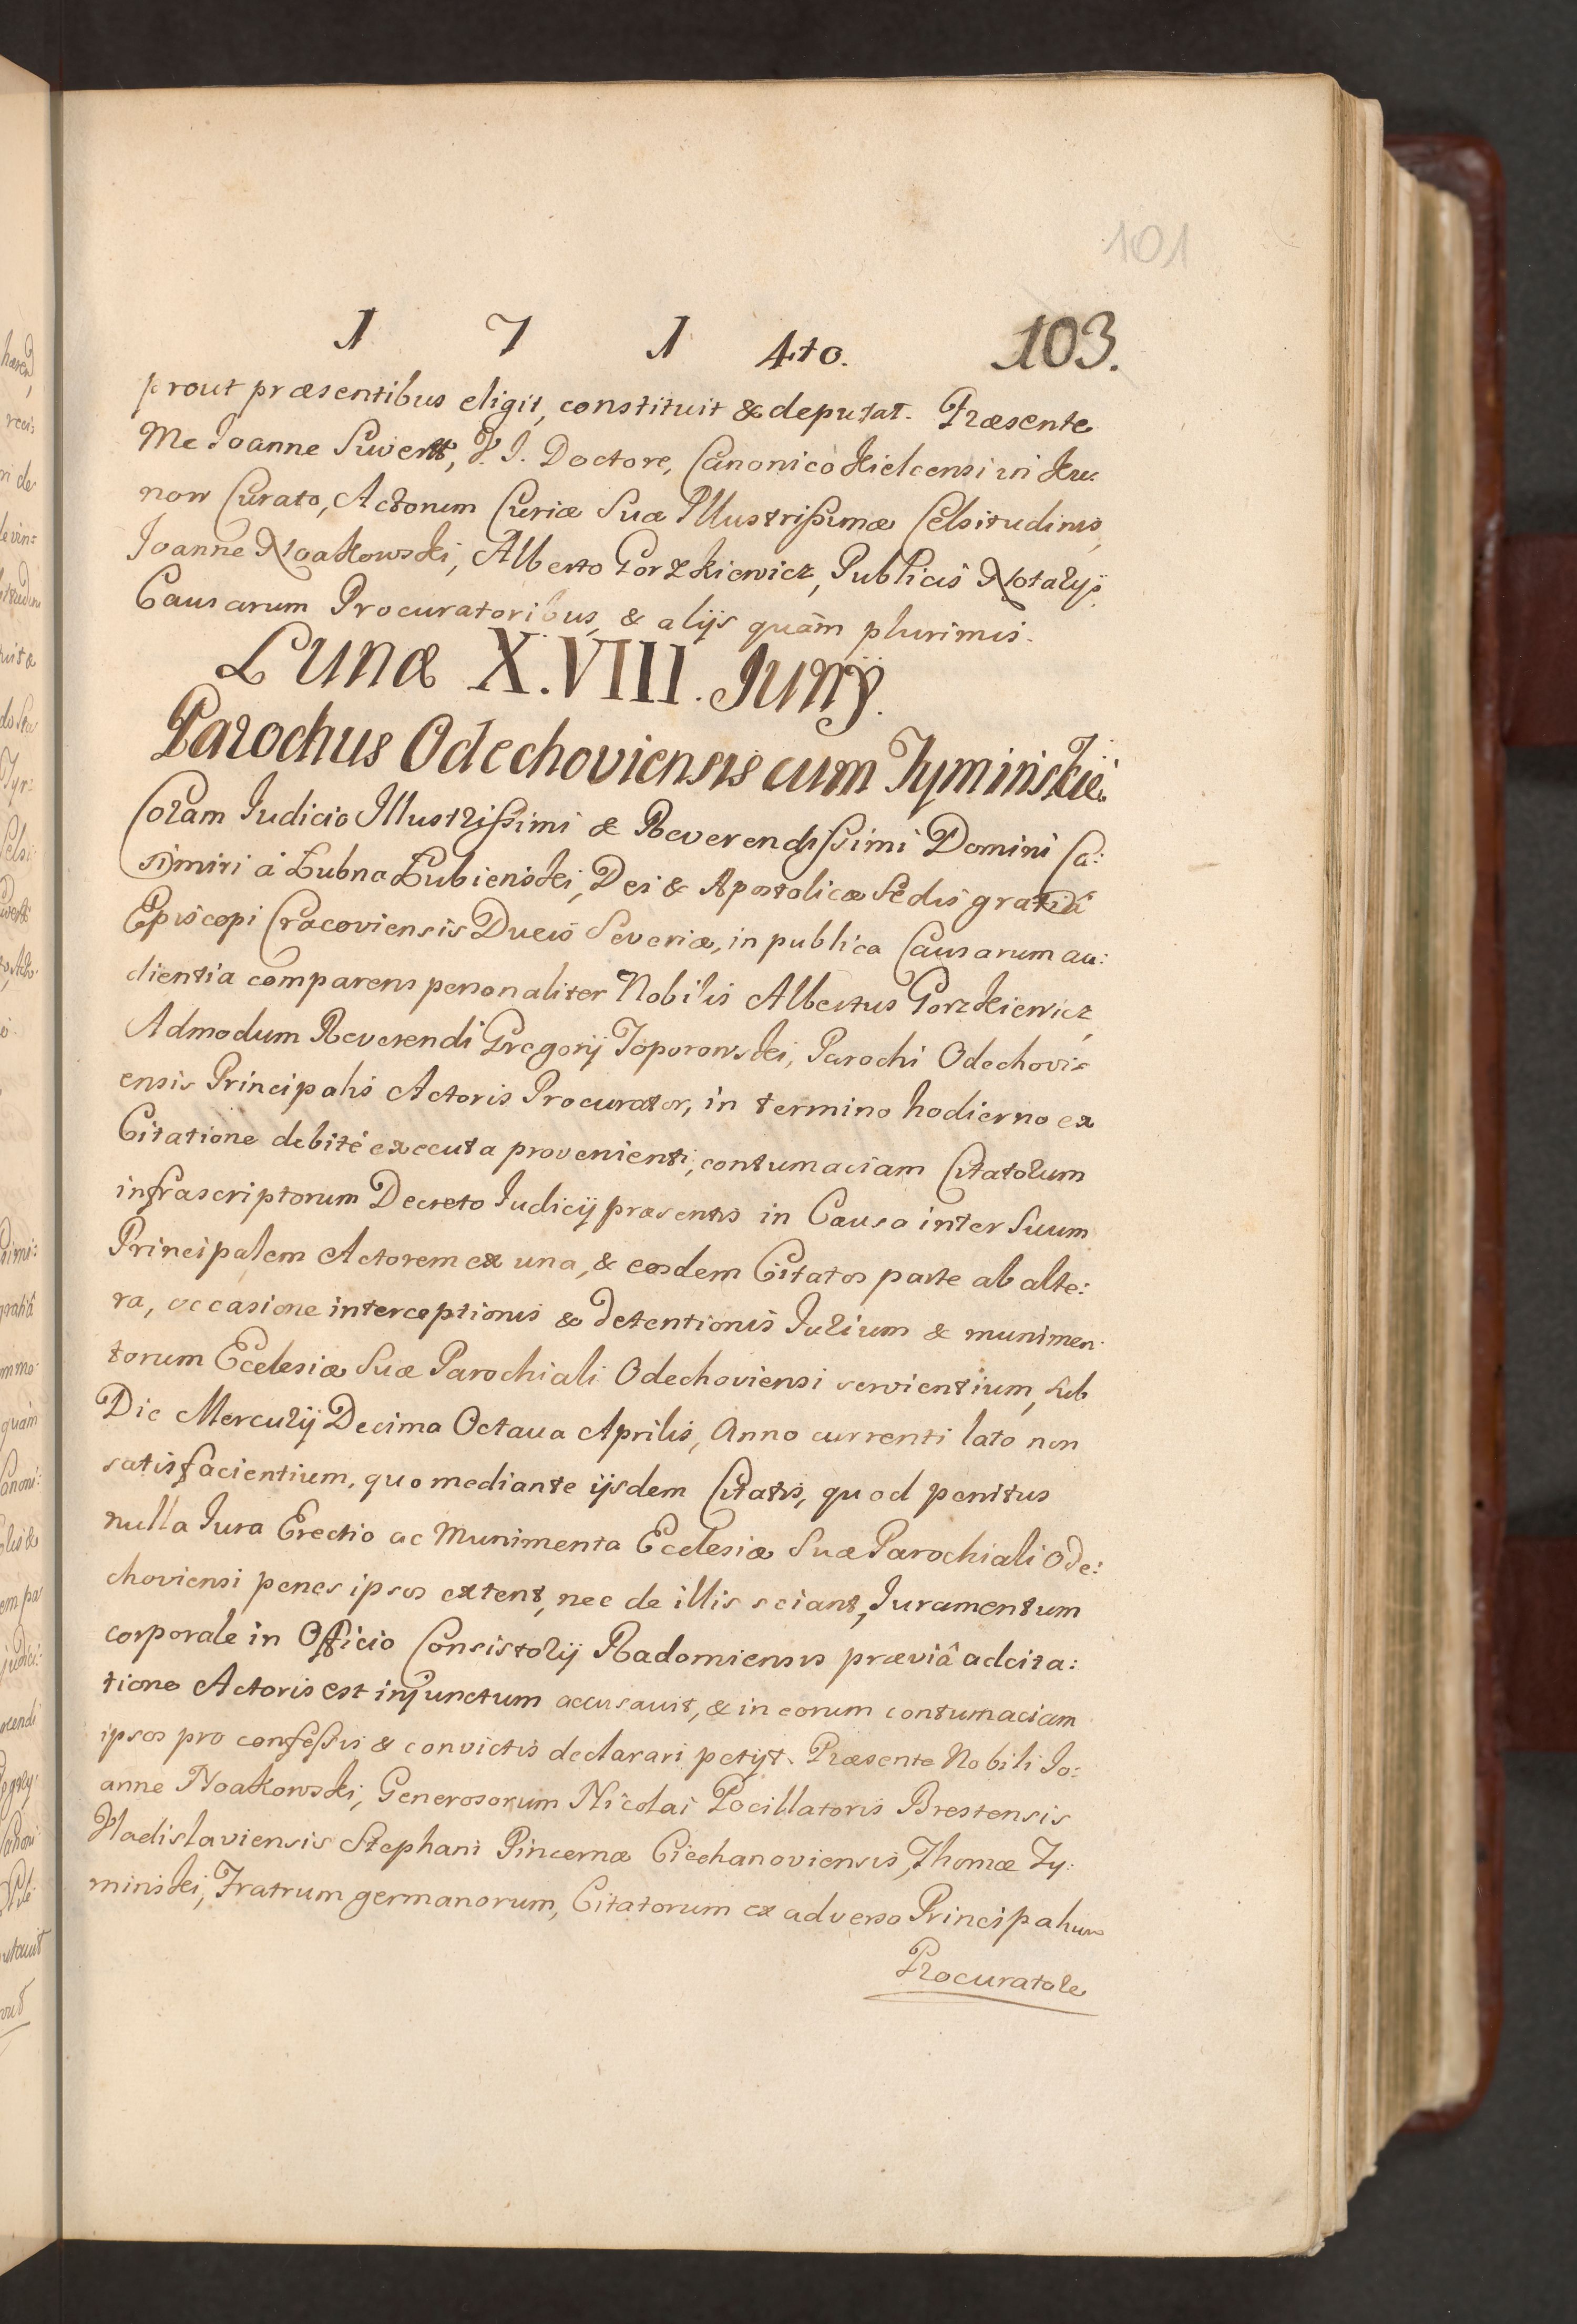 101
1 7 1 4to. 103.
prout præsentibus eligit, constituit & deputat. Præsente
Me Joanne Suwertt, V. J. Doctore, Canonico Kielcensi in Ku:
now Curato, Actorum Curiæ Suæ Illustrissimæ Celsitudinis,
Joanne Noakowski, Alberto Gorzkiewicz, Publicis Notarijs
Causarum Procuratoribus, & alijs quàm plurimis.
Lunæ X.VIII. Junÿ.
Parochus Odechoviensis cum Tyminskie.
Coram Judicio Illustrissimi & Reverendissimi Domini Ca:
simiri à Łubna Łubienski, Dei & Apostolicæ Sedis gratiâ
Episcopi Cracoviensis Ducis Severiæ, in publica Causarum au:
dientia comparens personaliter Nobilis Albertus Gorzkiewicz,
Admodum Reverendi Gregorij Toporowski, Parochi Odechovi:
ensis Principalis Actoris Procurator, in termino hodierno ex
Citatione debitè executa provenienti, contumaciam Citatorum
infrascriptorum Decreto Judicij præsentis in Causa inter Suum
Principalem Actorem ex una, & eosdem Citatos parte ab alte:
ra, occasione interceptionis & detentionis Jurium & munimen:
torum Ecclesiæ Suæ Parochiali Odechoviensi servientium, sub
Die Mercurij Decima Octava Aprilis, Anno currenti lato non
satisfacientium, quo mediante ijsdem Citatis, quod penitus
nulla Jura Erectio ac Munimenta Ecclesiæ Suæ Parochiali Ode:
choviensi penes ipsos extent, nec de illis sciant, Juramentum
corporale in Officio Consistorij Radomiensis præviâ adcita:
tione Actoris est injunctum accusavit, & in eorum contumaciam
ipsos pro confessis & convictis declarari petijt. Præsente Nobili Jo:
anne Noakowski, Generosorum Nicolai Pocillatoris Brestensis
Vladislaviensis Stephani Pincernæ Ciechanoviensis, Thomæ Ty:
minski, Fratrum germanorum, Citatorum ex adverso Principalium
Procuratore